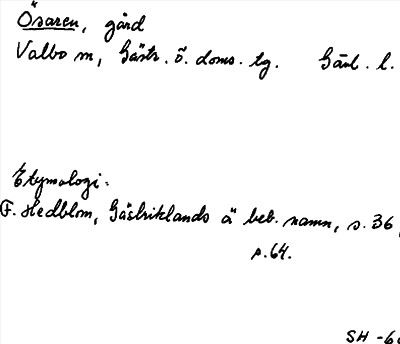 Ösaren, gård
Valbo sn, Gästr. ö. doms. lg. Gävl. l.
Etymologi:
F. Hedblom, Gästriklands ä beb. namn, s. 36,
s. 64.
SH -60